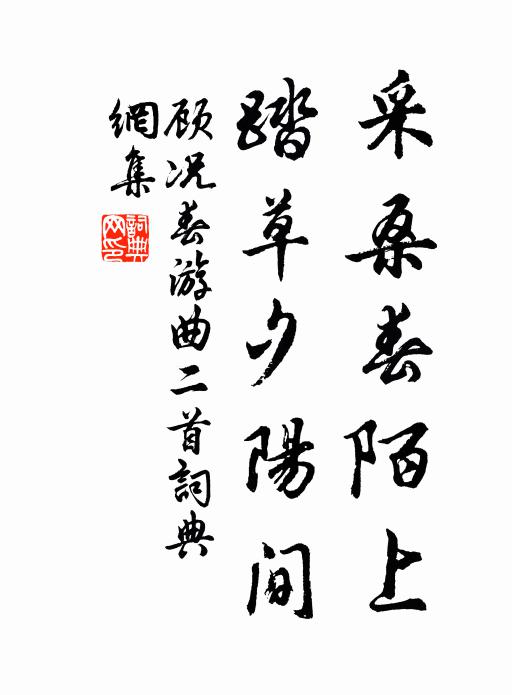 采桑春陌上
踏草夕陽間
顾况春游曲二首詞典
網集
詞典网印